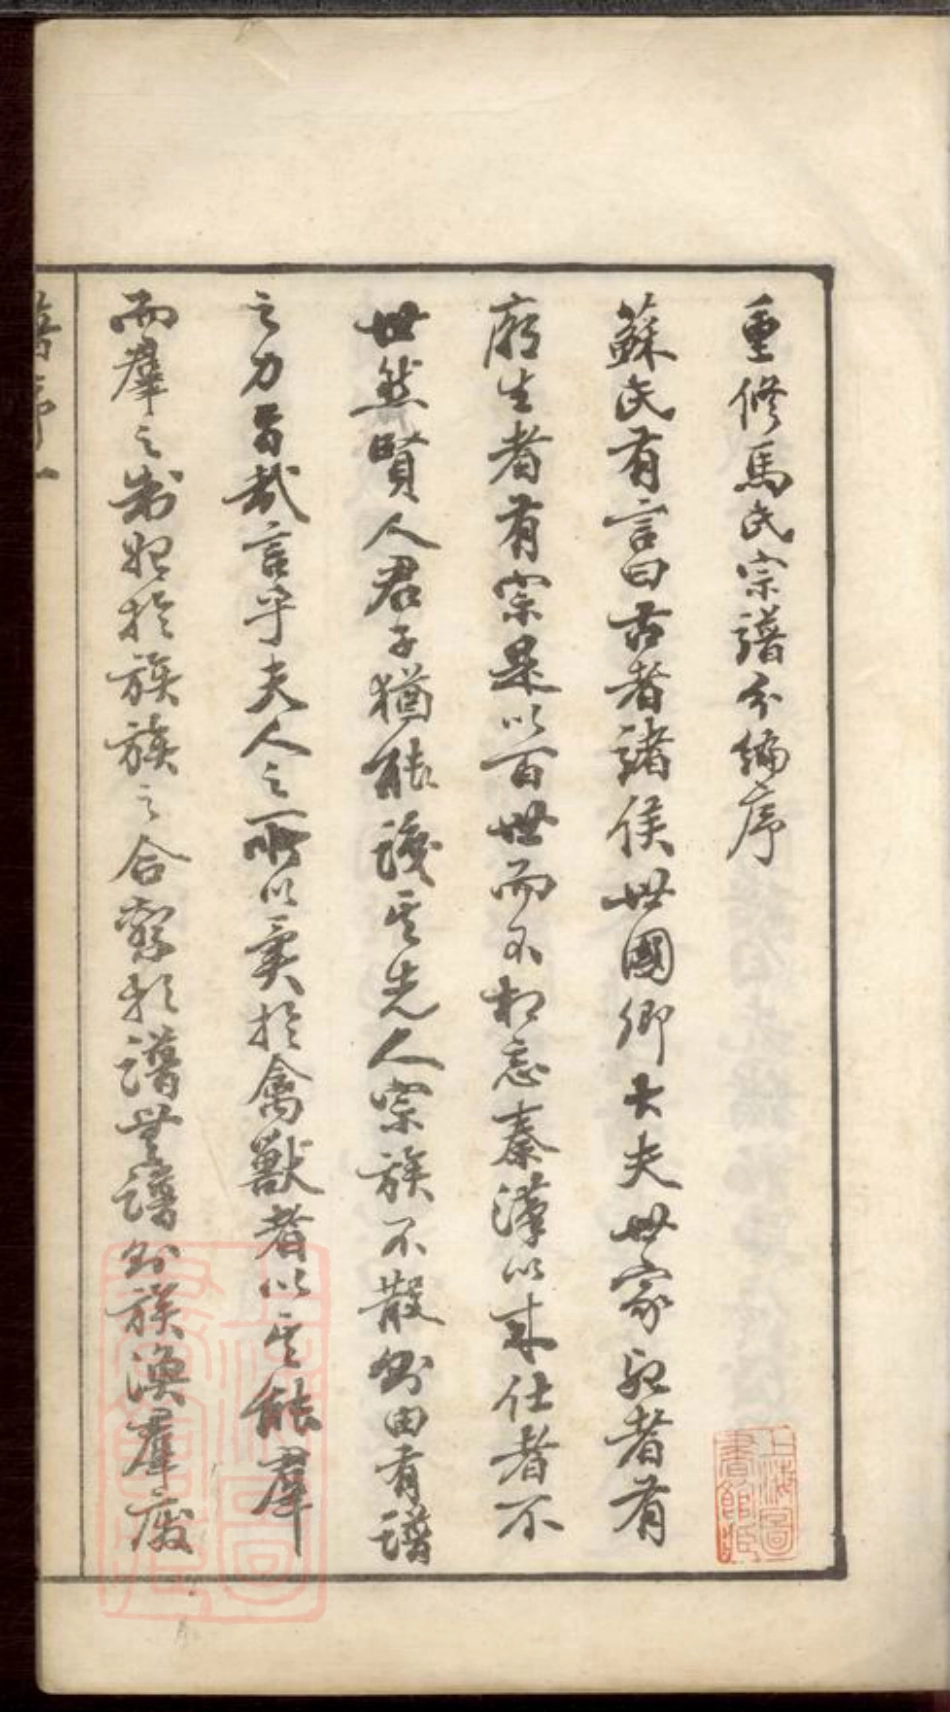 重修馬氏宗譜分編序
蘇氏有言曰古者諸侯世國卿大夫世家死者有
廟生者有宗是以百世而不相忘秦漢以來仕者不
世然賢人君子猶能識其先人宗族不散則由有譜
之力旨哉言乎夫人之所以異於禽獸者以其能羣
而羣之制始於族族之合繫於譜無譜則族渙羣廢
上海圖
書館藏
上海圖
書館藏